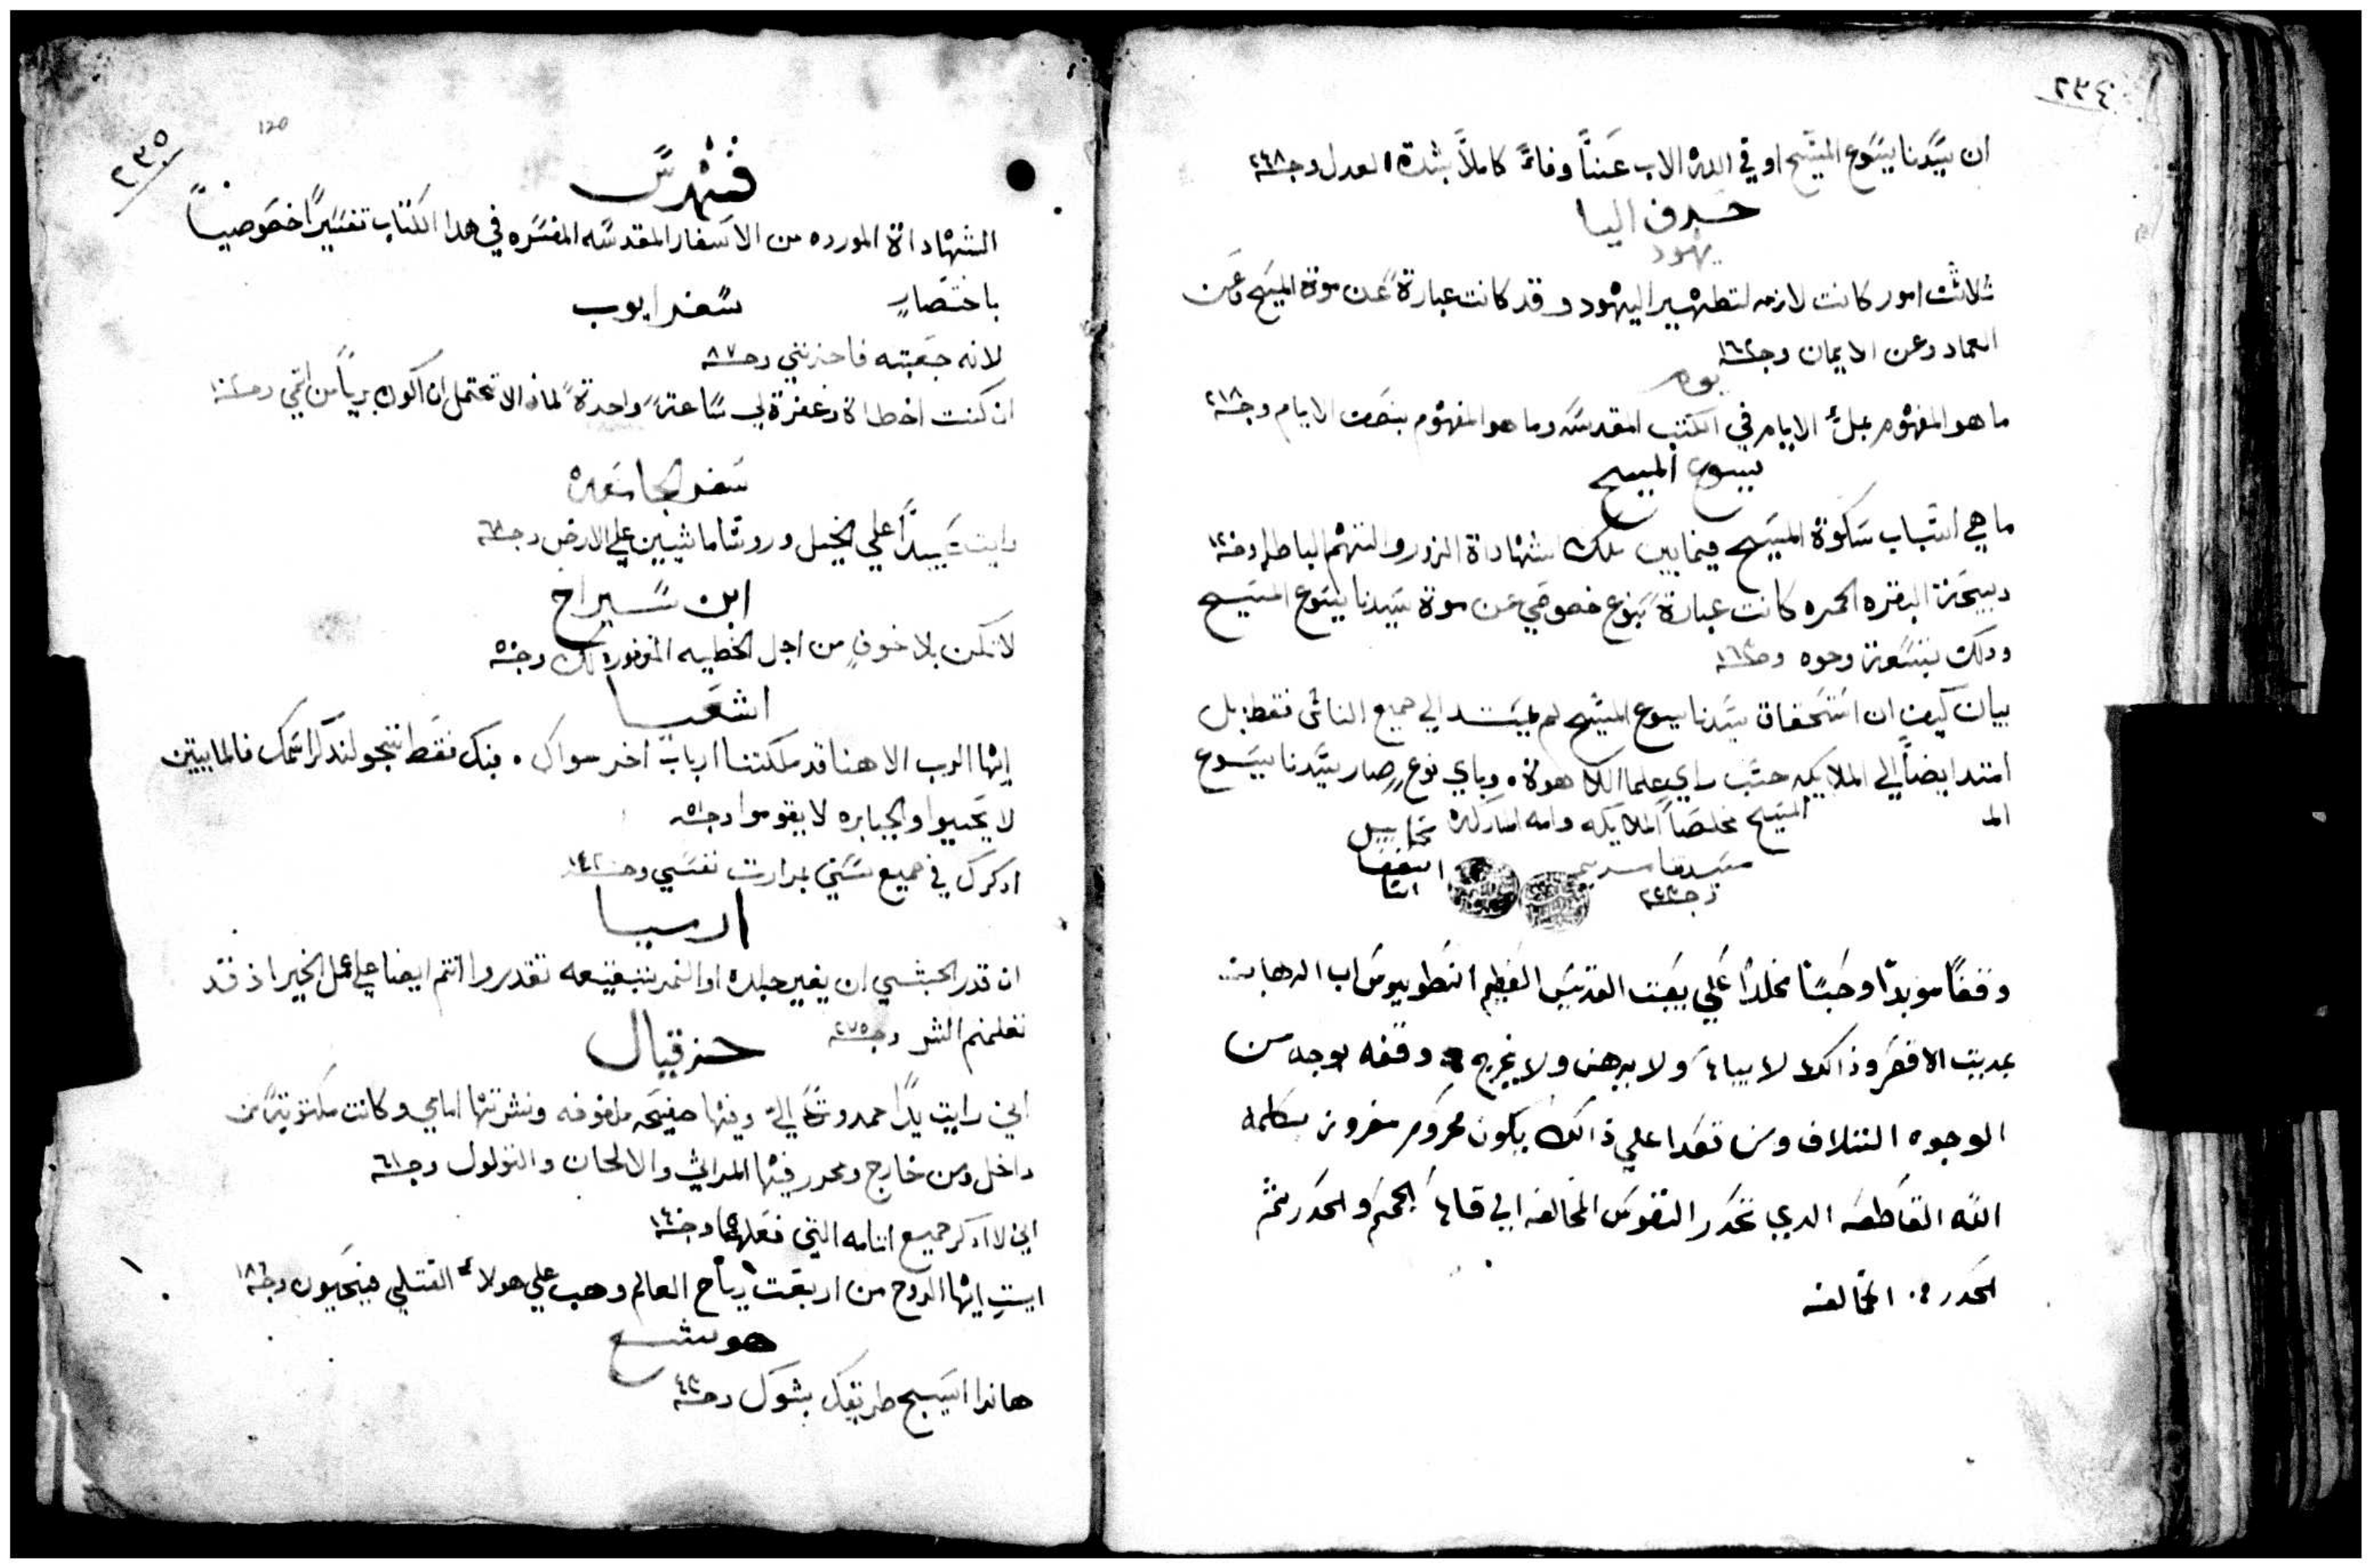 ٢٣٤
ان سيدنا يسوع المسيح اوفي الله الاب عننا وفاءً كاملاً بشدة العدل وجه ٢٤٨
حرف اليا
يهود
ثلاثت امور كانت لازمه لتطهير اليهود وقد كانت عبارةً عن موة المسيح وعن
العماد وعن الايمان وجه ١٦٢
يوم
ما هو المفهوم بملؤ الايام في الكتب المقدسه وما هو المفهوم بنصف الايام وجه ٢١٨
يسوع المسيح
ما هي اسباب سكوة المسيح فيمابين تلك الشهاداة الزور والتهم الباطله وجه
دبيحة البقره الحمره كانت عبارةً بنوع خصوصي عن موة سيدنا يسوع المسيح
ودلك بتسعة وجوه وجه
بيان كيف ان استحقاق سيدنا يسوع المسيح لم يمتد الي جميع الناس فقط بل
امتد ايضاً الي الملايكه حسب راي علما اللاهوة . وباي نوعٍ صار سيدنا يسوع
المـ
المسيح مخلصاً الملايكه وامه المباركه
سيدتنا مريم
وجه
وقفاً موبداً وحبساً مخلداً علي بيعت القديس العظيم انطونيوس اب الرهبان
بمدينت الاقصر وذالك لا يباع ولا يرهن ولا يخرج وقفه بوجه من
الوجوه التتلاف ومن تعدا علي ذالك يكون محروم مفروز بكلمة
الله القاطعه الدي تحدر النفوس المخالفه الي قاع الجحيم والحدر ثم
الحدر من المخالفه
٢٣٥
120
فهرس
الشهاداة المورده من الاسفار المقدسه المفسره في هدا الكتاب تفسيراً خصوصياً
باختصارٍ
سفر ايوب
لانه جعبته فاحزنني وجه ٨٧
ان كنت اخطاة وغفرة لي ساعتةً واحدةً لمادا لا تحتمل ان اكون برياً من اثمي وجه
سفر الجامعه
رايت عبيداً علي الخيل وروسا ماشيين علي الارض وجه
ابن سيراخ
لا تكن بلا خوفٍ من اجل الخطيه المغفوره لك وجه
اشعيا
ايها الرب الاهنا قد ملكتنا ارباب اخر سواك . فبك فقط نتجو لندكر اسمك فالمايتين
لا يحييوا والجبابره لا يقوموا وجه
ادكرك في جميع سنتي بمرارت نفسي وجه
ارميا
ان قدر الحبشي ان يغير جلده او النمر تبقيعه تقدروا انتم ايضا علي عمل الخير اذ قد
تعلمتم الشر وجه ٢٧٥
حزقيال
اني رايت يداً ممدودةً الي وفيها صفيحه ملفوفه ونشرتها امامي وكانت مكتوبةً من
داخل ومن خارج ومحرر فيها المراثي والالحان والتولول وجه ٦١
اني لا ادكر جميع اتامه التي فعلها وجه
ايت ايها الروح من اربعت رياح العالم وهب علي هولاء القتلي فيحيون وجه ١٨٦
هوشع
هاندا اسيج طريقك بشوك وجه